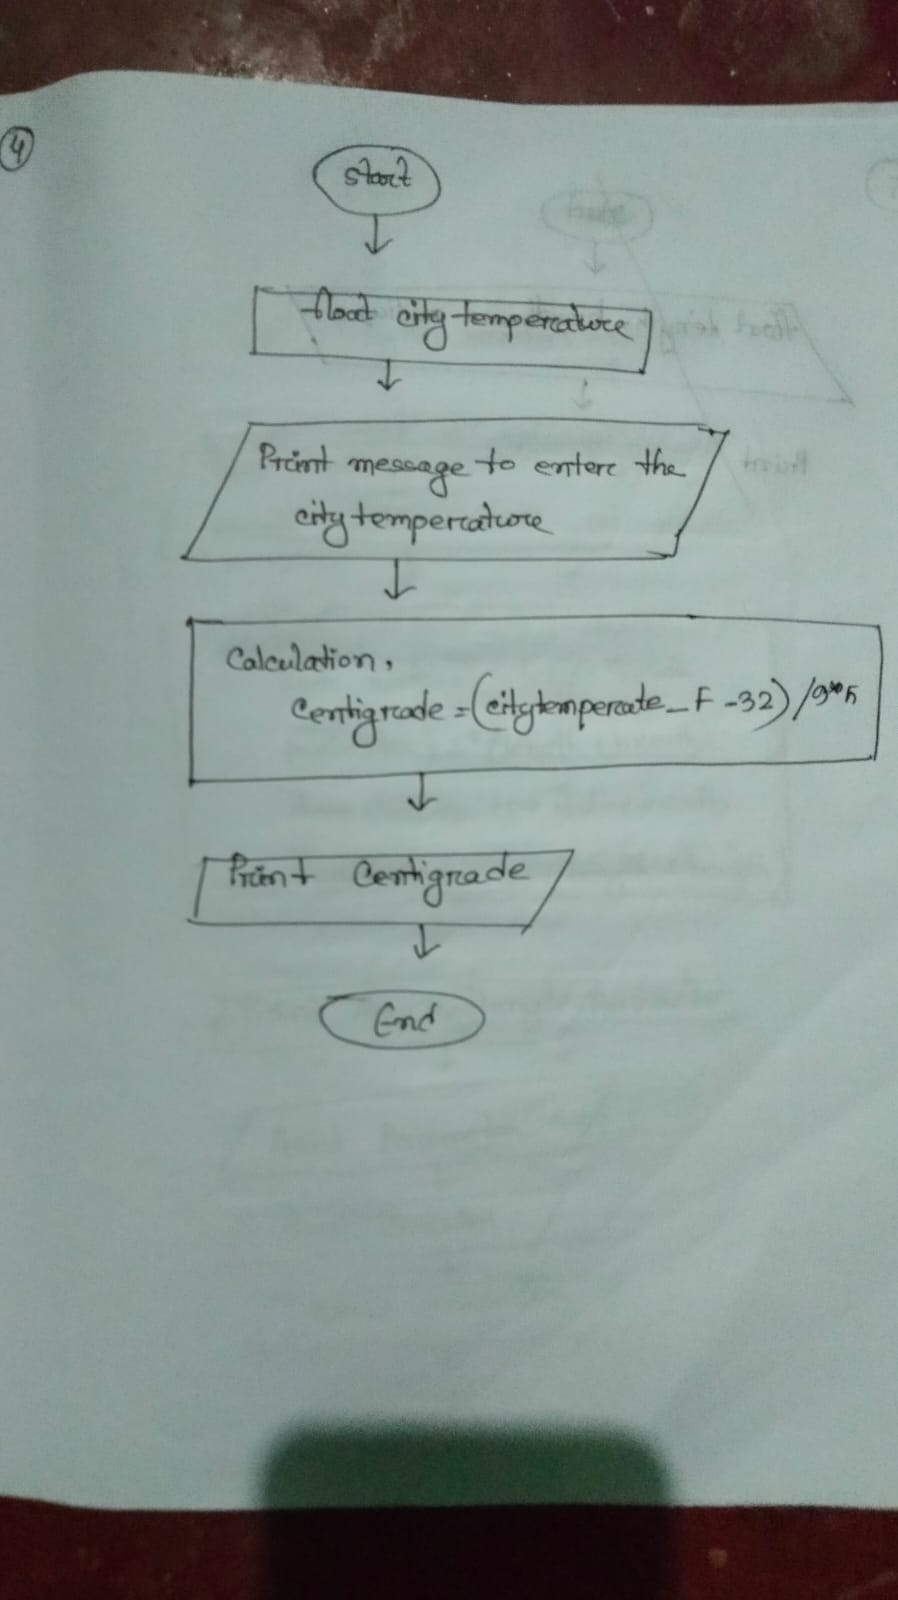 4
start
float city temperature
Print message to enter the
city temperature
Calculation,
Centigrade = (citytemperate_F -32) /9*5
Print Centigrade
End
start
float
Print